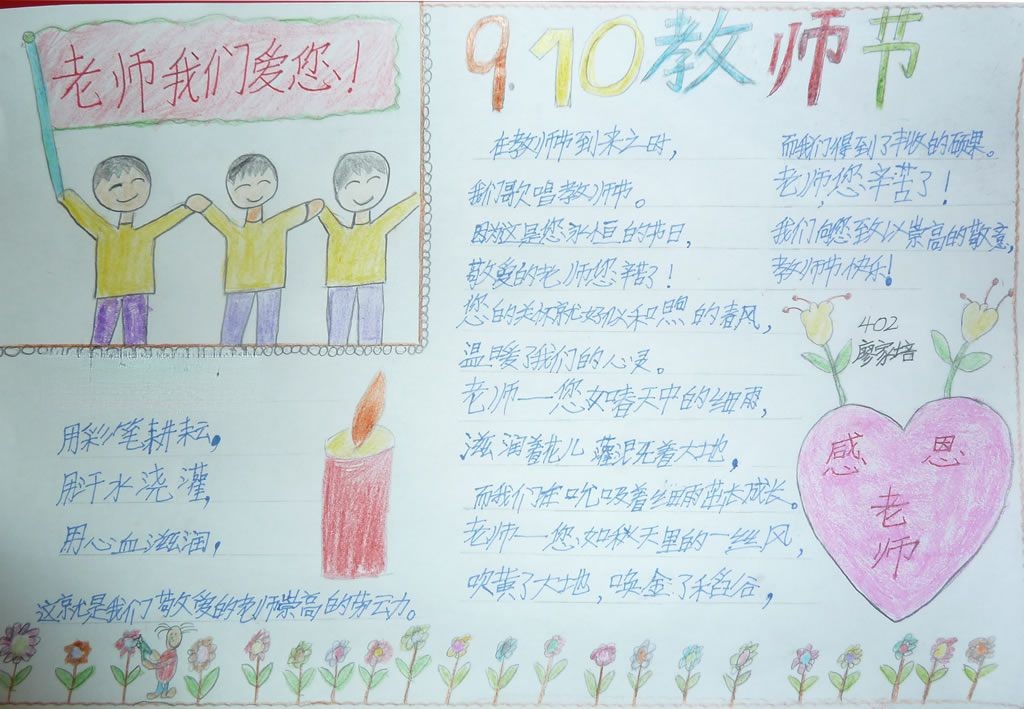 老师我们爱您!
用彩笔耕耘,
用汗水浇灌,
用心血滋润,
这就是我们敬爱的老师崇高的劳动力。
9.10教师节
在教师节到来之时,
我们歌唱教师节。
因为这是您永恒的节日,
敬爱的老师您辛苦了!
您的关怀就好似和煦的春风,
温暖了我们的心灵。
老师——您如春天中的细雨,
滋润着花儿灌泥充着大地,
而我们在吮吸着细雨茁长成长。
老师——您如秋天里的一丝风,
吹黄了大地,唤金了稻谷,
而我们得到了丰收的硕果。
老师,您辛苦了!
我们向您致以崇高的敬意,
教师节快乐!
402
廖家培
感恩
老师